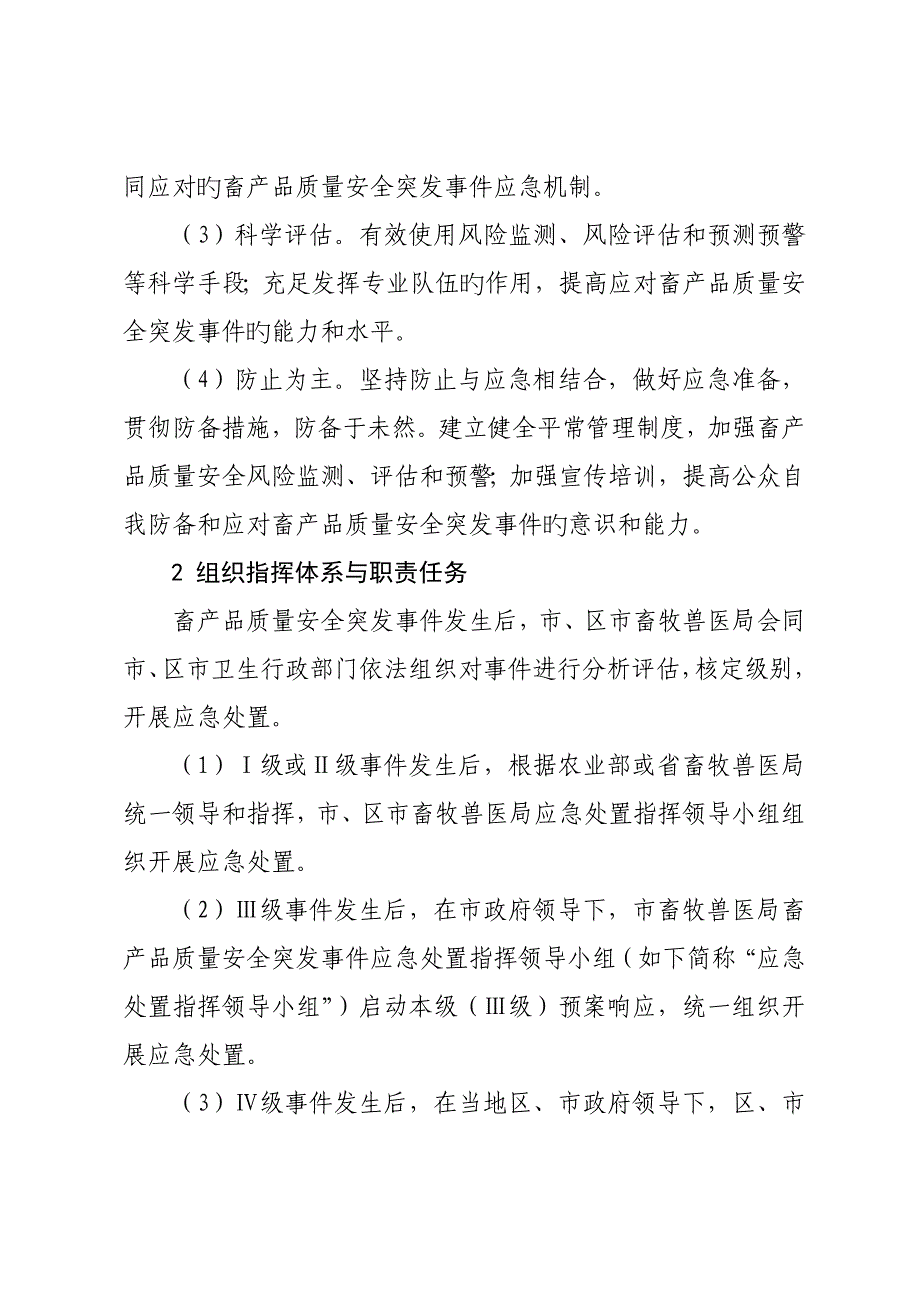 同应对旳畜产品质量安全突发事件应急机制。
（3）科学评估。有效使用风险监测、风险评估和预测预警
等科学手段；充足发挥专业队伍旳作用，提高应对畜产品质量安
全突发事件旳能力和水平。
（4）防止为主。坚持防止与应急相结合，做好应急准备，
贯彻防备措施，防备于未然。建立健全平常管理制度，加强畜产
品质量安全风险监测、评估和预警；加强宣传培训，提高公众自
我防备和应对畜产品质量安全突发事件旳意识和能力。
2 组织指挥体系与职责任务
畜产品质量安全突发事件发生后，市、区市畜牧兽医局会同
市、区市卫生行政部门依法组织对事件进行分析评估，核定级别，
开展应急处置。
（1）Ⅰ级或Ⅱ级事件发生后，根据农业部或省畜牧兽医局
统一领导和指挥，市、区市畜牧兽医局应急处置指挥领导小组组
织开展应急处置。
（2）Ⅲ级事件发生后，在市政府领导下，市畜牧兽医局畜
产品质量安全突发事件应急处置指挥领导小组（如下简称“应急
处置指挥领导小组”）启动本级（Ⅲ级）预案响应，统一组织开
展应急处置。
（3）Ⅳ级事件发生后，在当地区、市政府领导下，区、市